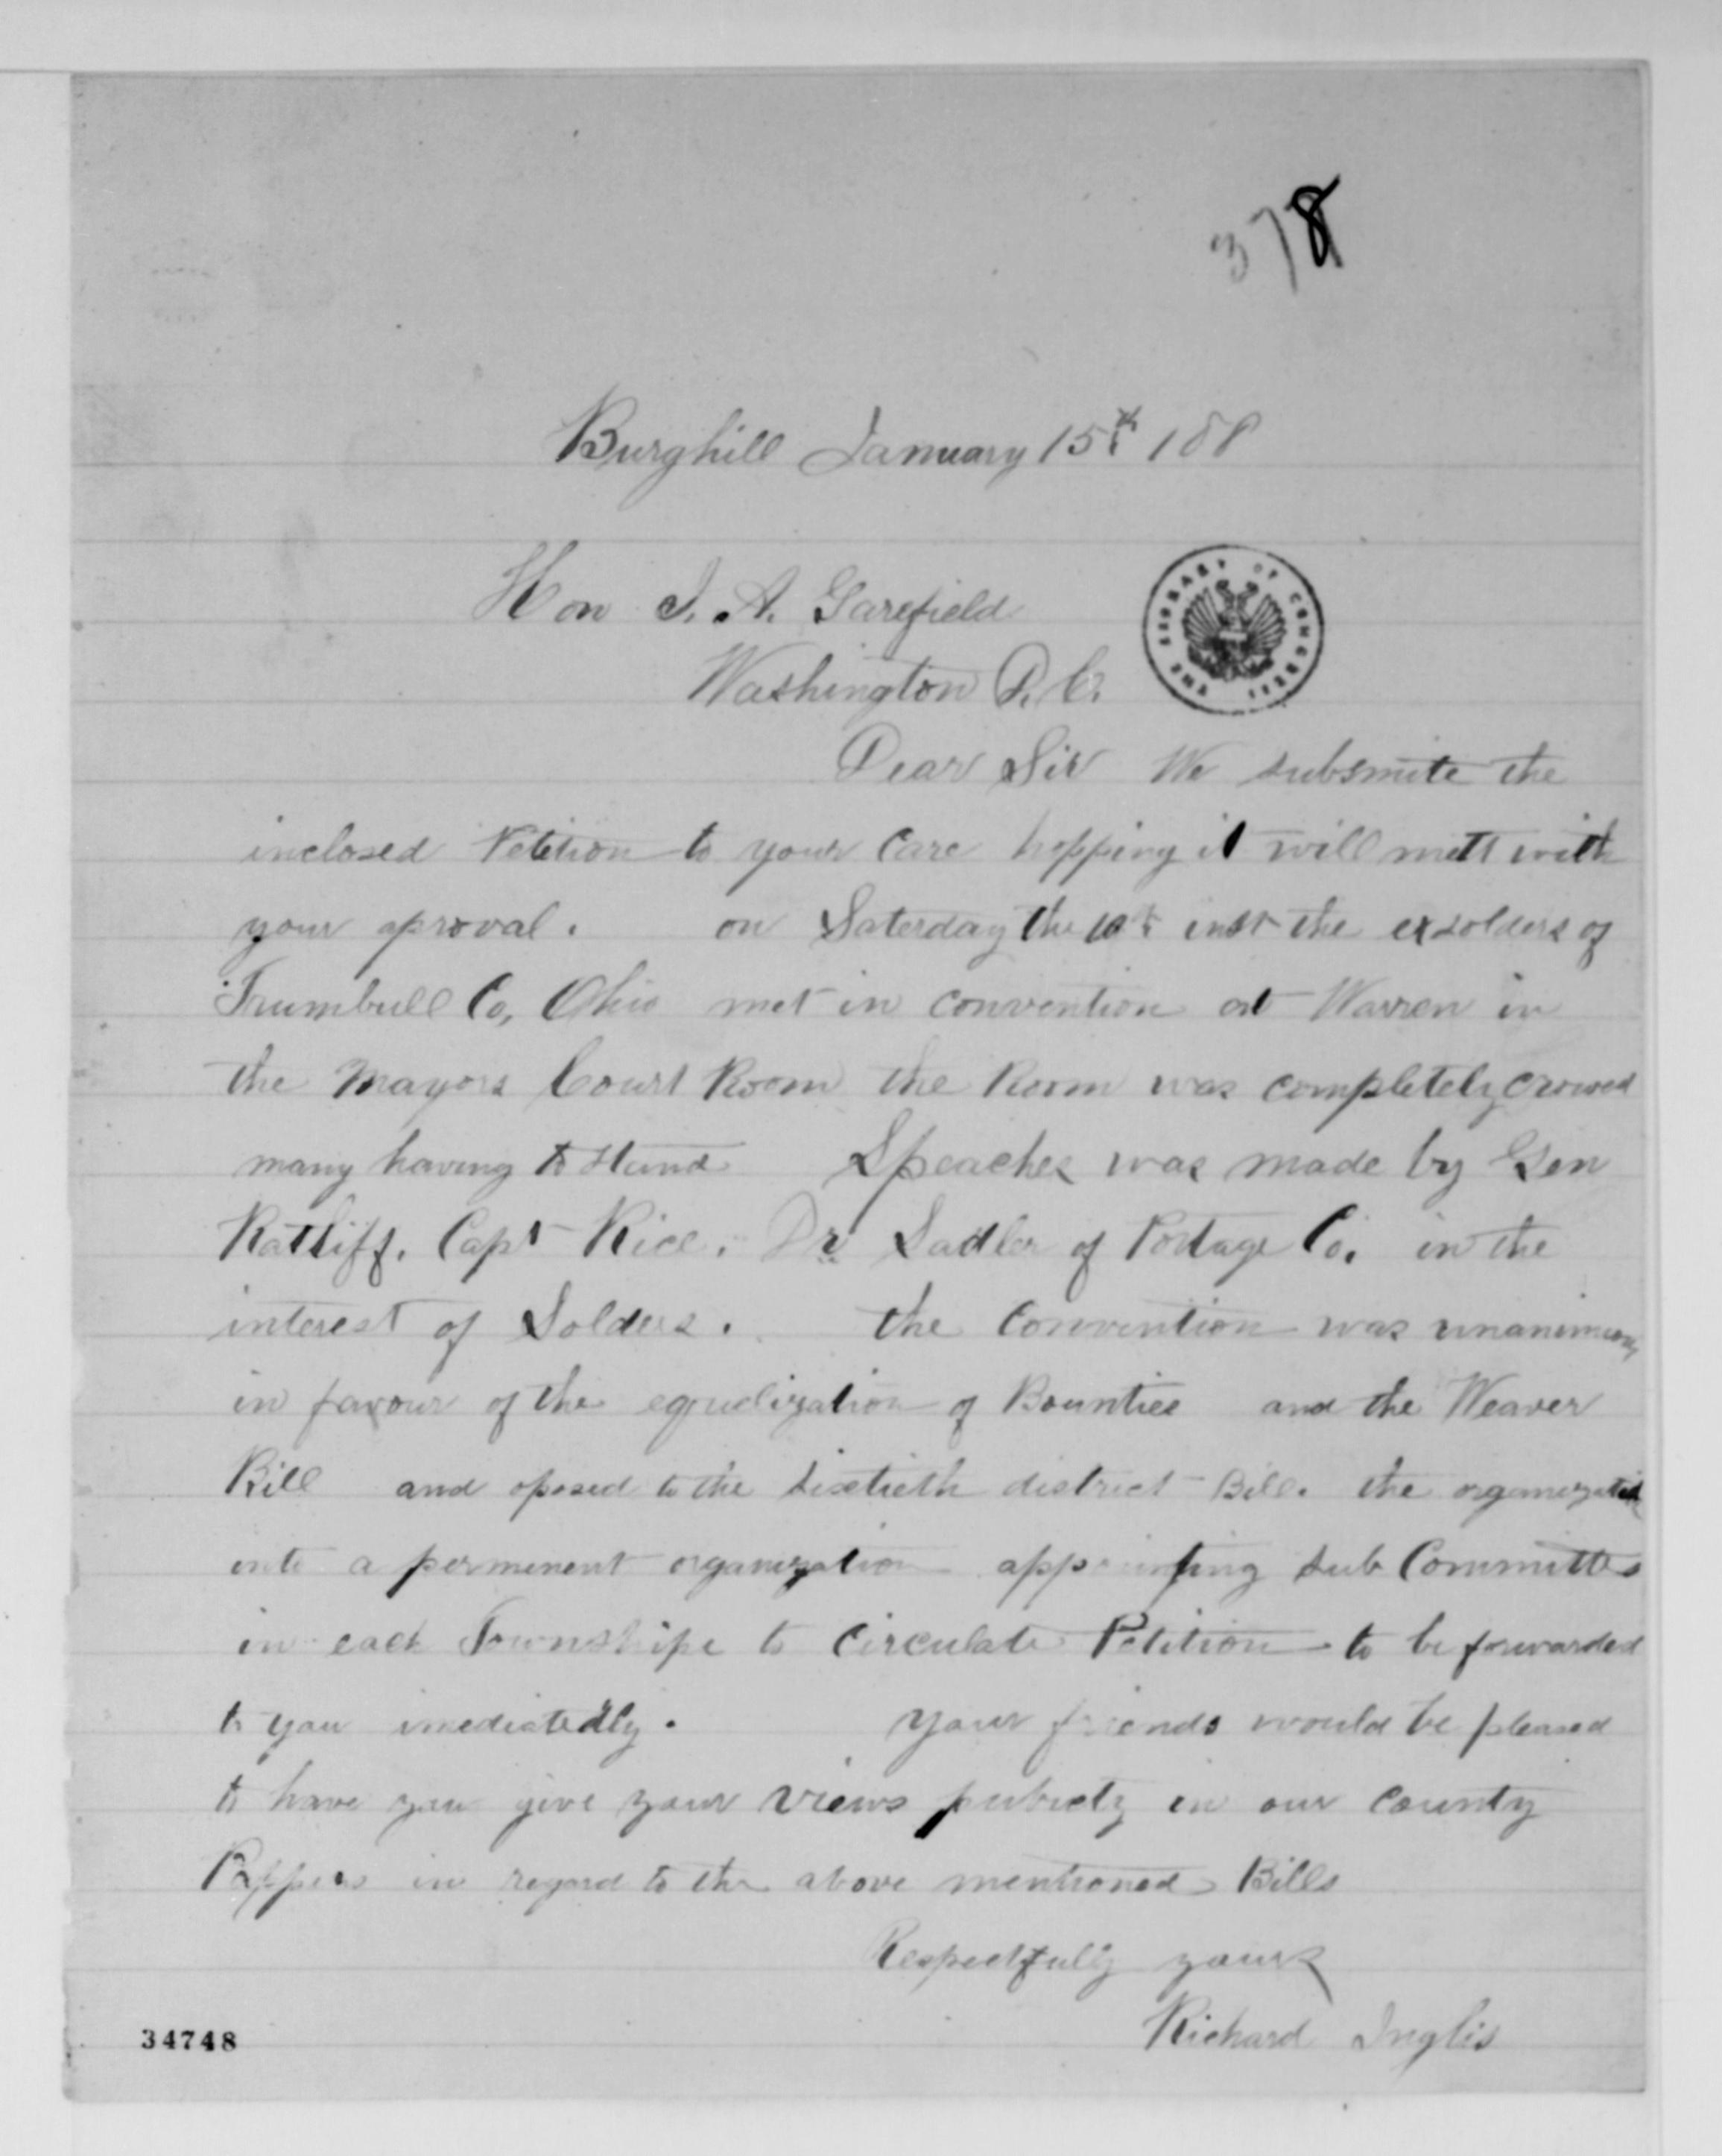 378
Burghill January 15th 188
Hon J. A. Garefield
THE LIBRARY OF CONGRESS
Washington D. C.
Dear Sir We subsmite the
inclosed Petition to your Care hopping it will mett with
your aproval. on Saterday the 10th inst the exsolders of
Trumbull Co, Ohio met in Convention at Warren in
the Mayors Court Room the Room was completely crowed
many having to stand Speaches was made by Gen
Ratliff. Capt Rice. Dr Sadler of Portage Co. in the
interest of Solders. the Convention was unanimous
in favour of the equelization of Bounties and the Weaver
Bill and oposed to the Sixtieth district Bill. the organization
into a perminent organization appointing Sub Committes
in each Townships to Circulate Petition to be forwarded
to you imediatedly. Your friends would be pleased
to have you give your views in our County
in regard to the above mentioned Bills
Respectfully yours
Richard Inglis
34748